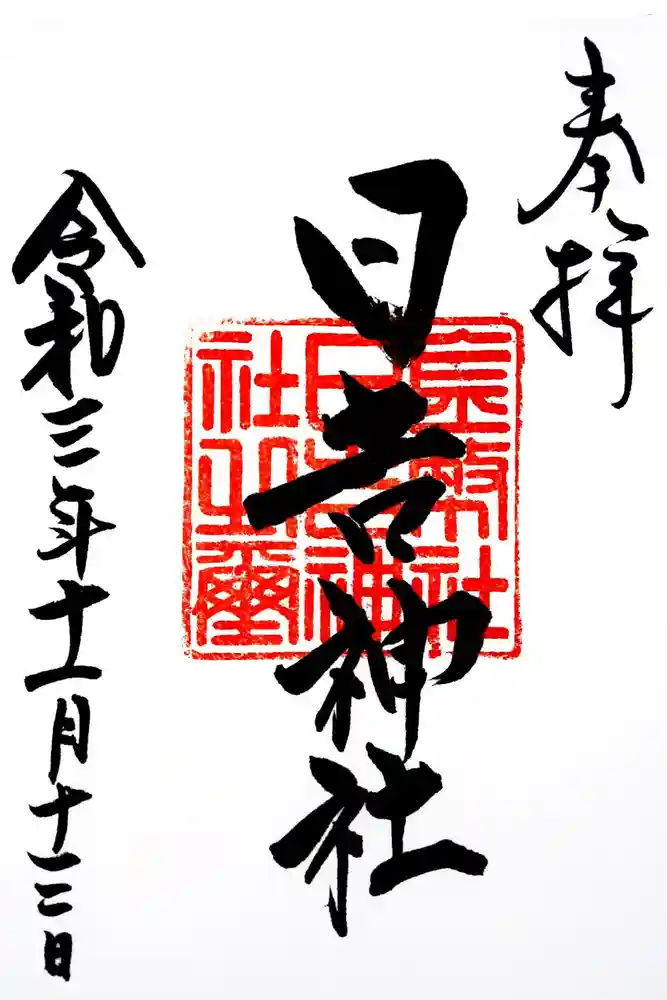 奉拝
日吉神社
幣社
日吉神
社之璽
令和三年十一月十三日